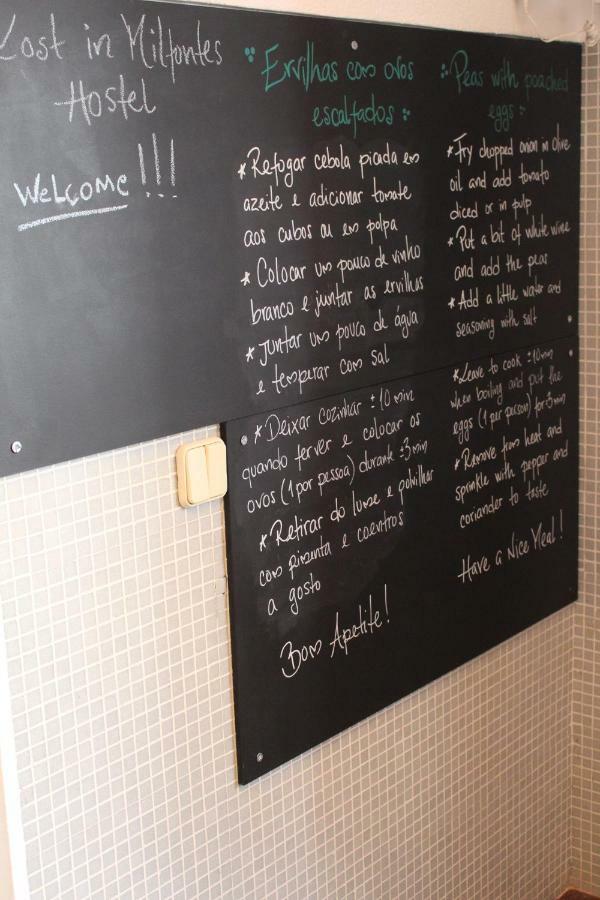 Lost in Milfontes
Hostel
WELCOME!!!
Ervilhas com ovos
escalfados
* Refogar cebola picada em
azeite e adicionar tomate
aos cubos ou em polpa
* Colocar um pouco de vinho
branco e juntar as ervilhas
* Juntar um pouco de água
e temperar com sal
* Deixar cozinhar ± 10 min
quando ferver e colocar os
ovos (1 por pessoa) durante ±3 min
* Retirar do lume e polvilhar
com pimenta e coentros
a gosto
Bom Apetite!
Peas with poached
eggs
* Fry chopped onion in olive
oil and add tomato
diced or in pulp
* Put a bit of white wine
and add the peas
* Add a little water and
seasoning with salt
* Leave to cook ±10 min
when boiling and put the
eggs (1 per person) for ±3min
* Remove from heat and
sprinkle with pepper and
coriander to taste
Have a Nice Meal!